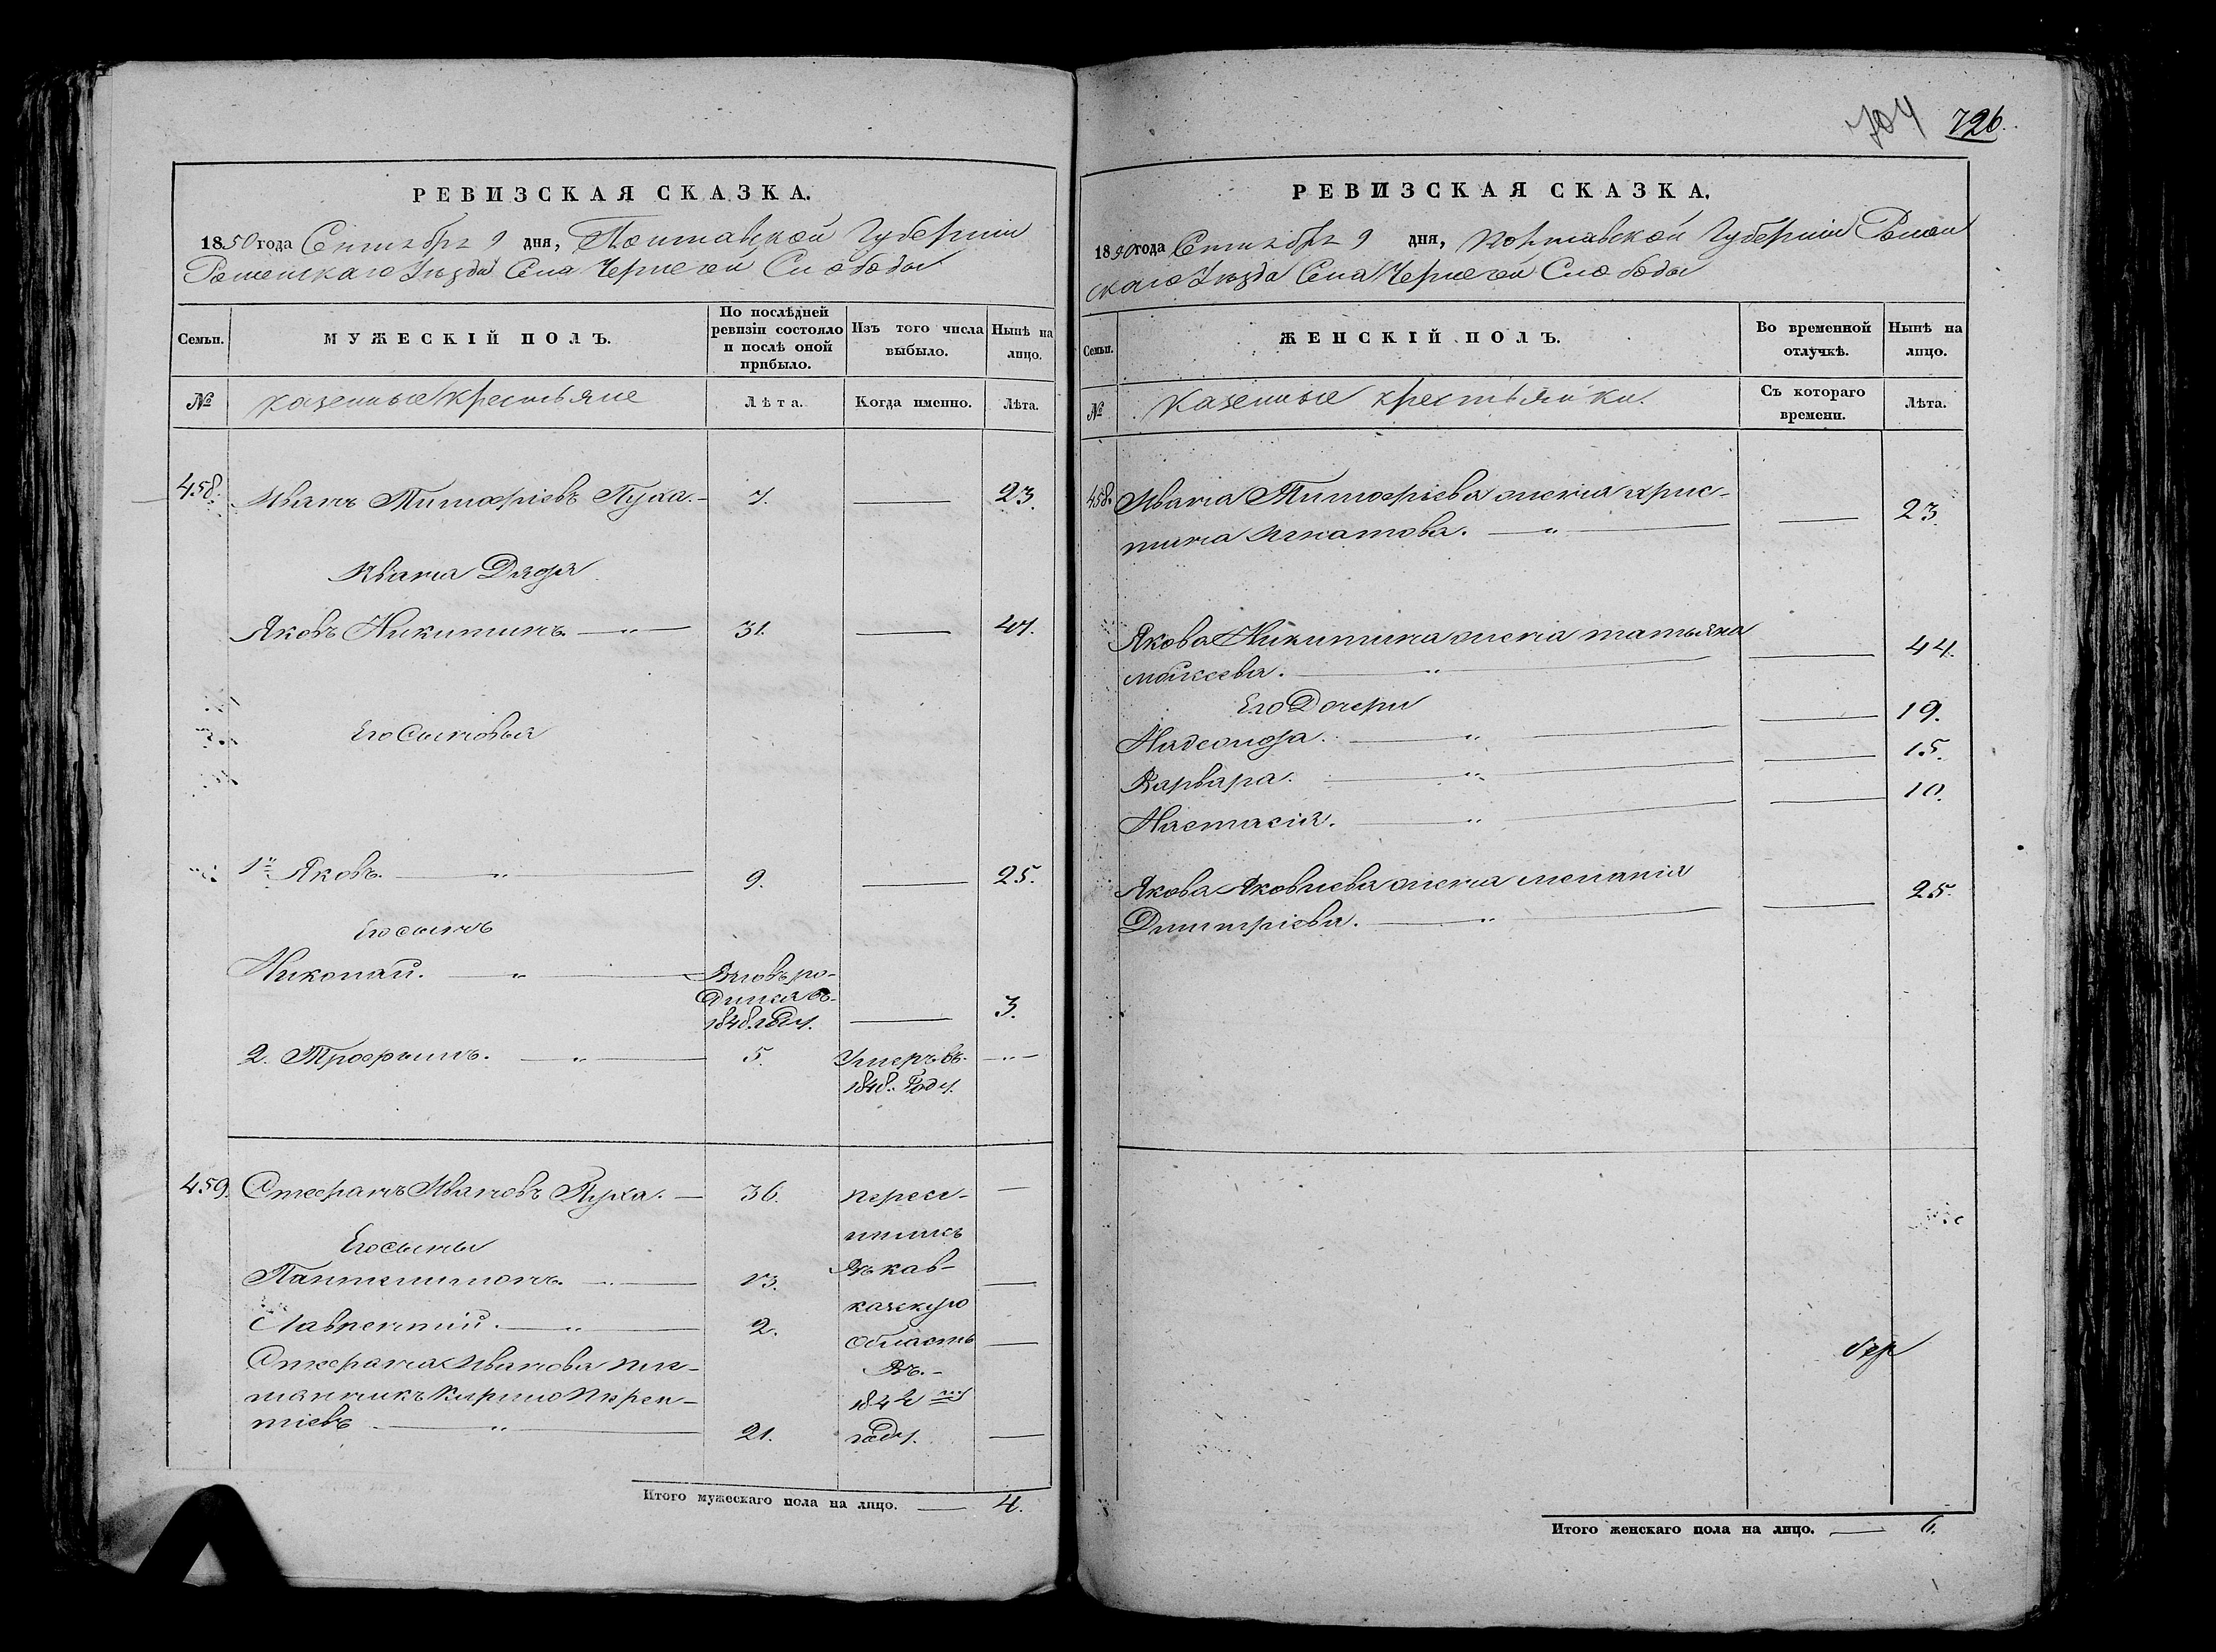 704 726.
РЕВИЗСКАЯ СКАЗКА.
1850 года Сентября 9 дня, Полтавской Губернии
Роменскаго Уѣзда Села Чернечей Слободы
Семьи.
МУЖЕСКІЙ ПОЛЪ.
По послѣдней
ревизіи состояло
и послѣ оной
прибыло.
Изъ того числа
выбыло.
Нынѣ на
лицо.
№
казенные крестьяне
Лѣта.
Когда именно.
Лѣта.
458. Иванъ Тимофѣевъ Пуха. 7. 23.
Ивана Дядя
Яковъ Никитинъ. 31. 47.
Его Сыновья
1й Яковъ. 9. 25.
Его сынъ
Николай. Вновь ро-
дился въ
1848 году. 3.
2. Трофимъ. 5. Умеръ въ
1848. Году.
459. Стефанъ Ивановъ Пуха. 36. пересе-
лились
Его сыны
Въ кав-
Пантелимонъ. 13.
казкую
Лаврентий. 2.
область
Стефана Иванова
Въ
Кирило
1842 мъ
тіевъ 21. году.
Итого мужескаго пола на лицо. 4.
РЕВИЗСКАЯ СКАЗКА.
1850 года Сентября 9 дня, Полтавской Губернии Ромен
скаго Уѣзда Села Чернечей Слободы
Семьи.
ЖЕНСКІЙ ПОЛЪ.
Во временной
отлучкѣ.
Нынѣ на
лицо.
№
Казенные крестьянки.
Съ котораго
времени.
Лѣта.
458. Ивана Тимофѣева жена хрис-
тина Игнатова. 23.
Якова Никитина жена татьяна
мойсеева. 44.
Его Дочери
Надежда. 19.
Варвара. 15.
Настасія. 10.
Якова Яковлева жена меланія
Дмитріева. 25.
Итого женскаго пола на лицо. 6.